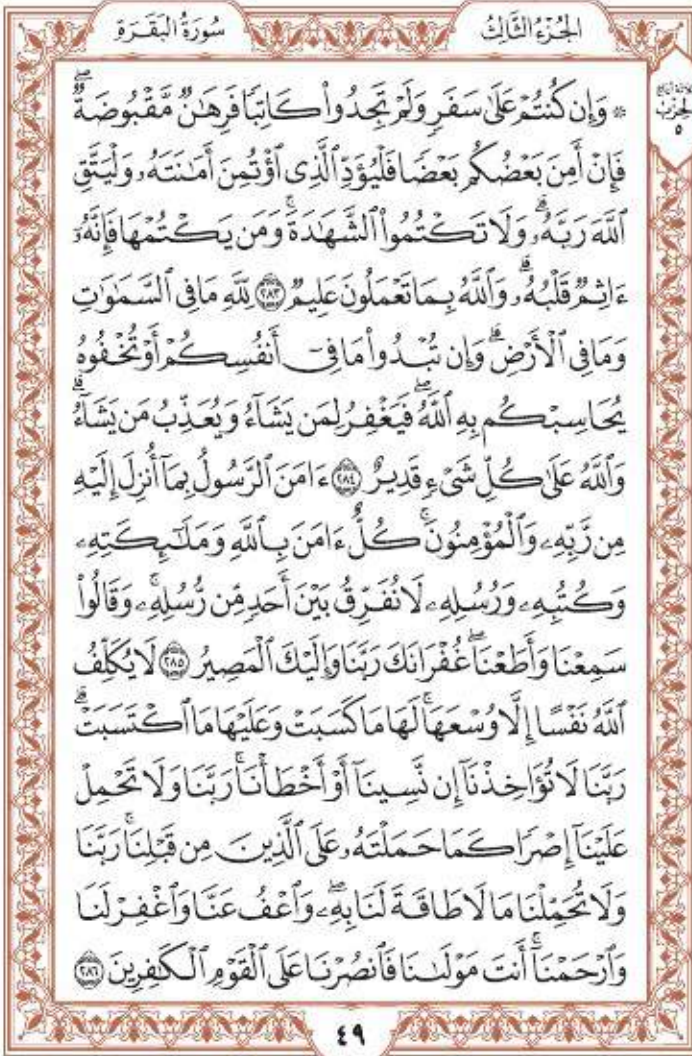 سُورَةُ البَقَرَةِ
الجُزْءُ الثَّالِثُ
الحِزْبِ
٥
۞ وَإِن كُنتُمْ عَلَىٰ سَفَرٍ وَلَمْ تَجِدُوا۟ كَاتِبًا فَرِهَـٰنٌ مَّقْبُوضَةٌ ۖ
فَإِنْ أَمِنَ بَعْضُكُم بَعْضًا فَلْيُؤَدِّ ٱلَّذِى ٱؤْتُمِنَ أَمَـٰنَتَهُۥ وَلْيَتَّقِ
ٱللَّهَ رَبَّهُۥ ۗ وَلَا تَكْتُمُوا۟ ٱلشَّهَـٰدَةَ ۚ وَمَن يَكْتُمْهَا فَإِنَّهُۥٓ
ءَاثِمٌ قَلْبُهُۥ ۗ وَٱللَّهُ بِمَا تَعْمَلُونَ عَلِيمٌ ٢٨٣ لِّلَّهِ مَا فِى ٱلسَّمَـٰوَٰتِ
وَمَا فِى ٱلْأَرْضِ ۗ وَإِن تُبْدُوا۟ مَا فِىٓ أَنفُسِكُمْ أَوْ تُخْفُوهُ
يُحَاسِبْكُم بِهِ ٱللَّهُ ۖ فَيَغْفِرُ لِمَن يَشَآءُ وَيُعَذِّبُ مَن يَشَآءُ ۗ
وَٱللَّهُ عَلَىٰ كُلِّ شَىْءٍ قَدِيرٌ ٢٨٤ ءَامَنَ ٱلرَّسُولُ بِمَآ أُنزِلَ إِلَيْهِ
مِن رَّبِّهِۦ وَٱلْمُؤْمِنُونَ ۚ كُلٌّ ءَامَنَ بِٱللَّهِ وَمَلَـٰٓئِكَتِهِۦ
وَكُتُبِهِۦ وَرُسُلِهِۦ لَا نُفَرِّقُ بَيْنَ أَحَدٍ مِّن رُّسُلِهِۦ ۚ وَقَالُوا۟
سَمِعْنَا وَأَطَعْنَا ۖ غُفْرَانَكَ رَبَّنَا وَإِلَيْكَ ٱلْمَصِيرُ ٢٨٥ لَا يُكَلِّفُ
ٱللَّهُ نَفْسًا إِلَّا وُسْعَهَا ۚ لَهَا مَا كَسَبَتْ وَعَلَيْهَا مَا ٱكْتَسَبَتْ ۗ
رَبَّنَا لَا تُؤَاخِذْنَآ إِن نَّسِينَآ أَوْ أَخْطَأْنَا ۚ رَبَّنَا وَلَا تَحْمِلْ
عَلَيْنَآ إِصْرًا كَمَا حَمَلْتَهُۥ عَلَى ٱلَّذِينَ مِن قَبْلِنَا ۚ رَبَّنَا
وَلَا تُحَمِّلْنَا مَا لَا طَاقَةَ لَنَا بِهِۦ ۖ وَٱعْفُ عَنَّا وَٱغْفِرْ لَنَا
وَٱرْحَمْنَآ ۚ أَنتَ مَوْلَىٰنَا فَٱنصُرْنَا عَلَى ٱلْقَوْمِ ٱلْكَـٰفِرِينَ ٢٨٦
٤٩